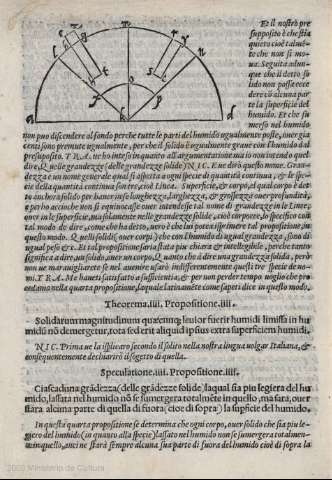 Et il nostro pre
supposito è che stia
quieto cioè talmẽ-
te che non si mo-
ua. Seguita adun-
que che il detto so-
lido non possa ecce
dere cõ alcuna par
te la superficie del
humido. Et che su
merso nel humido
non puo discendere al fondo perche tutte le parti del humido ugualmente poste, ouer gia
centi sono premute ugualmente, per che il solido è ugualmente graue con l'humido dal
presuposito. T R A. ue ho inteso in quanto all'argumentatione ma io non intendo quel
dire, Quelle grandezze (delle grandezze solide) N I C. E ue dirò questo nome. Gran-
dezza è un nome generale qual si aspetta a ogni specie di quantita continua, & le spe-
cie della quantita continua son tre, cioè Linea. Superficie, & corpo, al qual corpo è det
to anchora solido per hauer in se longhezza, larghezza, & grossezza ouer profundita,
& perho accioche non si equiuocasse ouer intendesse tal nome di grandezze in le linee,
ouer in le superficie, ma solamente nelle grandezze solide, cioè corporee, lo specificò con
tal modo di dire, come che ha detto, uero è che lui poteua isprimere tal propositione, in
questo modo. Quelli solidi (ouer corpi) che con l'humido di ugual grandezza, sono di
ugual peso &c. Et tal propositione saria stata piu chiara & intelligibile, perche tanto
significa a dire, un solido, ouer un corpo, Quanto che à dire una grandezza solida, perho
non ue marauigliarete se nel auenire usarò indifferentemente questi tre specie de no-
mi. T R A. Me haueti satisfatto a sufficientia, & per non perder tempo uoglio che pro-
cediamo nella quarta propositione, laquale latinamẽte come saperi dice in questo modo.
Theorema. iiii. Propositione. iiii.
Solidarum magnitudinum quæcunq; leuior fuerit humidi limissa in hu
mido nõ demergetur, tota sed erit aliquid ipsius extra superficiem humidi.
N I C. Prima ue la isplicarò secondo il solito nella nostra lingua uolgar Italiana, &
consequentemente dechiarirò il sogetto di quella.
Speculatione. iiii. Propositione. iiii.
Ciascaduna grãdezza (delle grãdezze solide) laqual sia piu legiera del hu
mido, lassata nel humido nõ se sumergera totalmẽte in quello, ma sarà, ouer
starà alcuna parte di quella di fuora (cioè di sopra) la supficie del humido.
In questa quarta propositione se determina che ogni corpo, ouer solido che sia piu le-
giero del humido (in quanto alla specie) lassato nel humido non se sumergera totalmen-
te in quello, anci ne starà sempre alcuna sua parte di fuora del humido cioè di sopra la
2009 Ministerio de Cultura